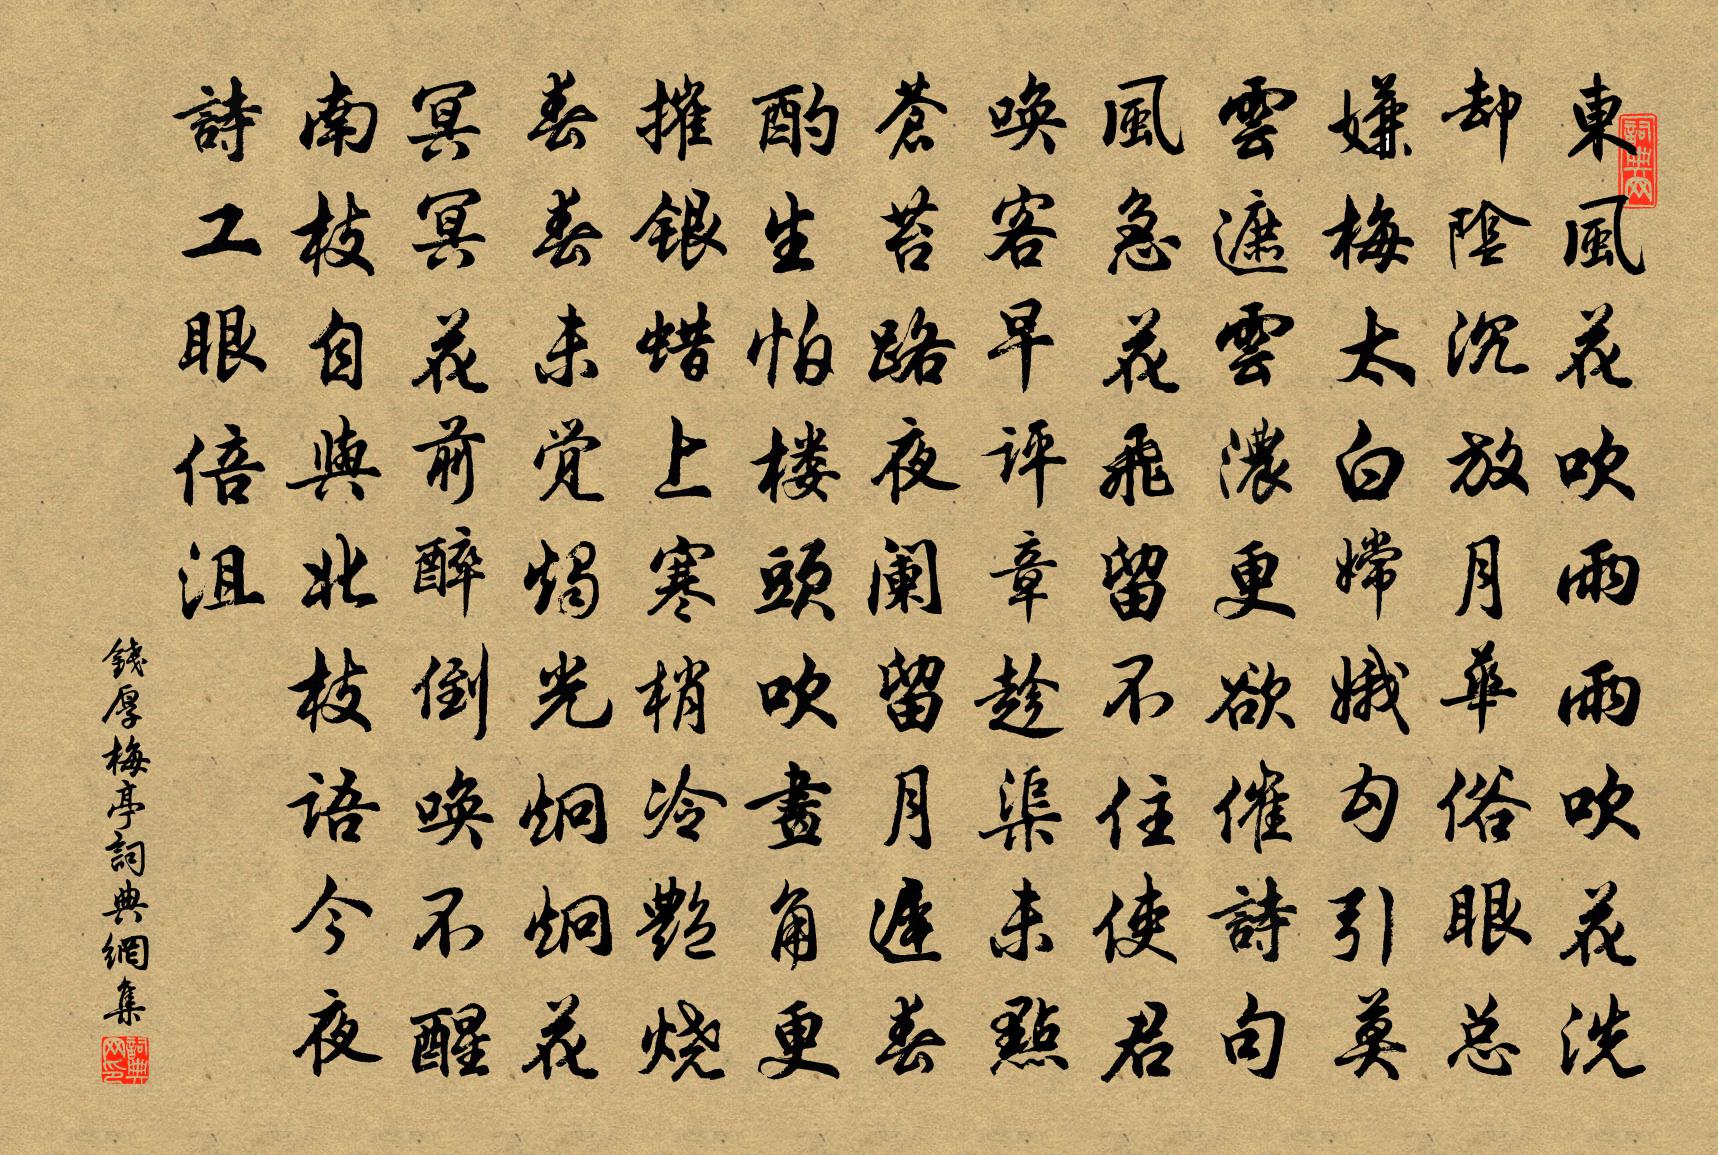 東風花吹雨雨吹花洗
却陰沉放月華俗眼总
嫌梅太白嫦娥勾引莫
雲遮雲濃更欲催詩句
風急花飛留不住使君
唤客早评章趁渠未點
苍苔路夜阑留月遲春
酌生怕楼頭吹畫角更
摧銀蜡上寒梢冷艶烧
春春未觉燭光炯炯花
冥冥花前醉倒唤不醒
南枝自與北枝语今夜
詩工眼倍沮
錢厚梅亭詞典網集
詞典网
詞典网印